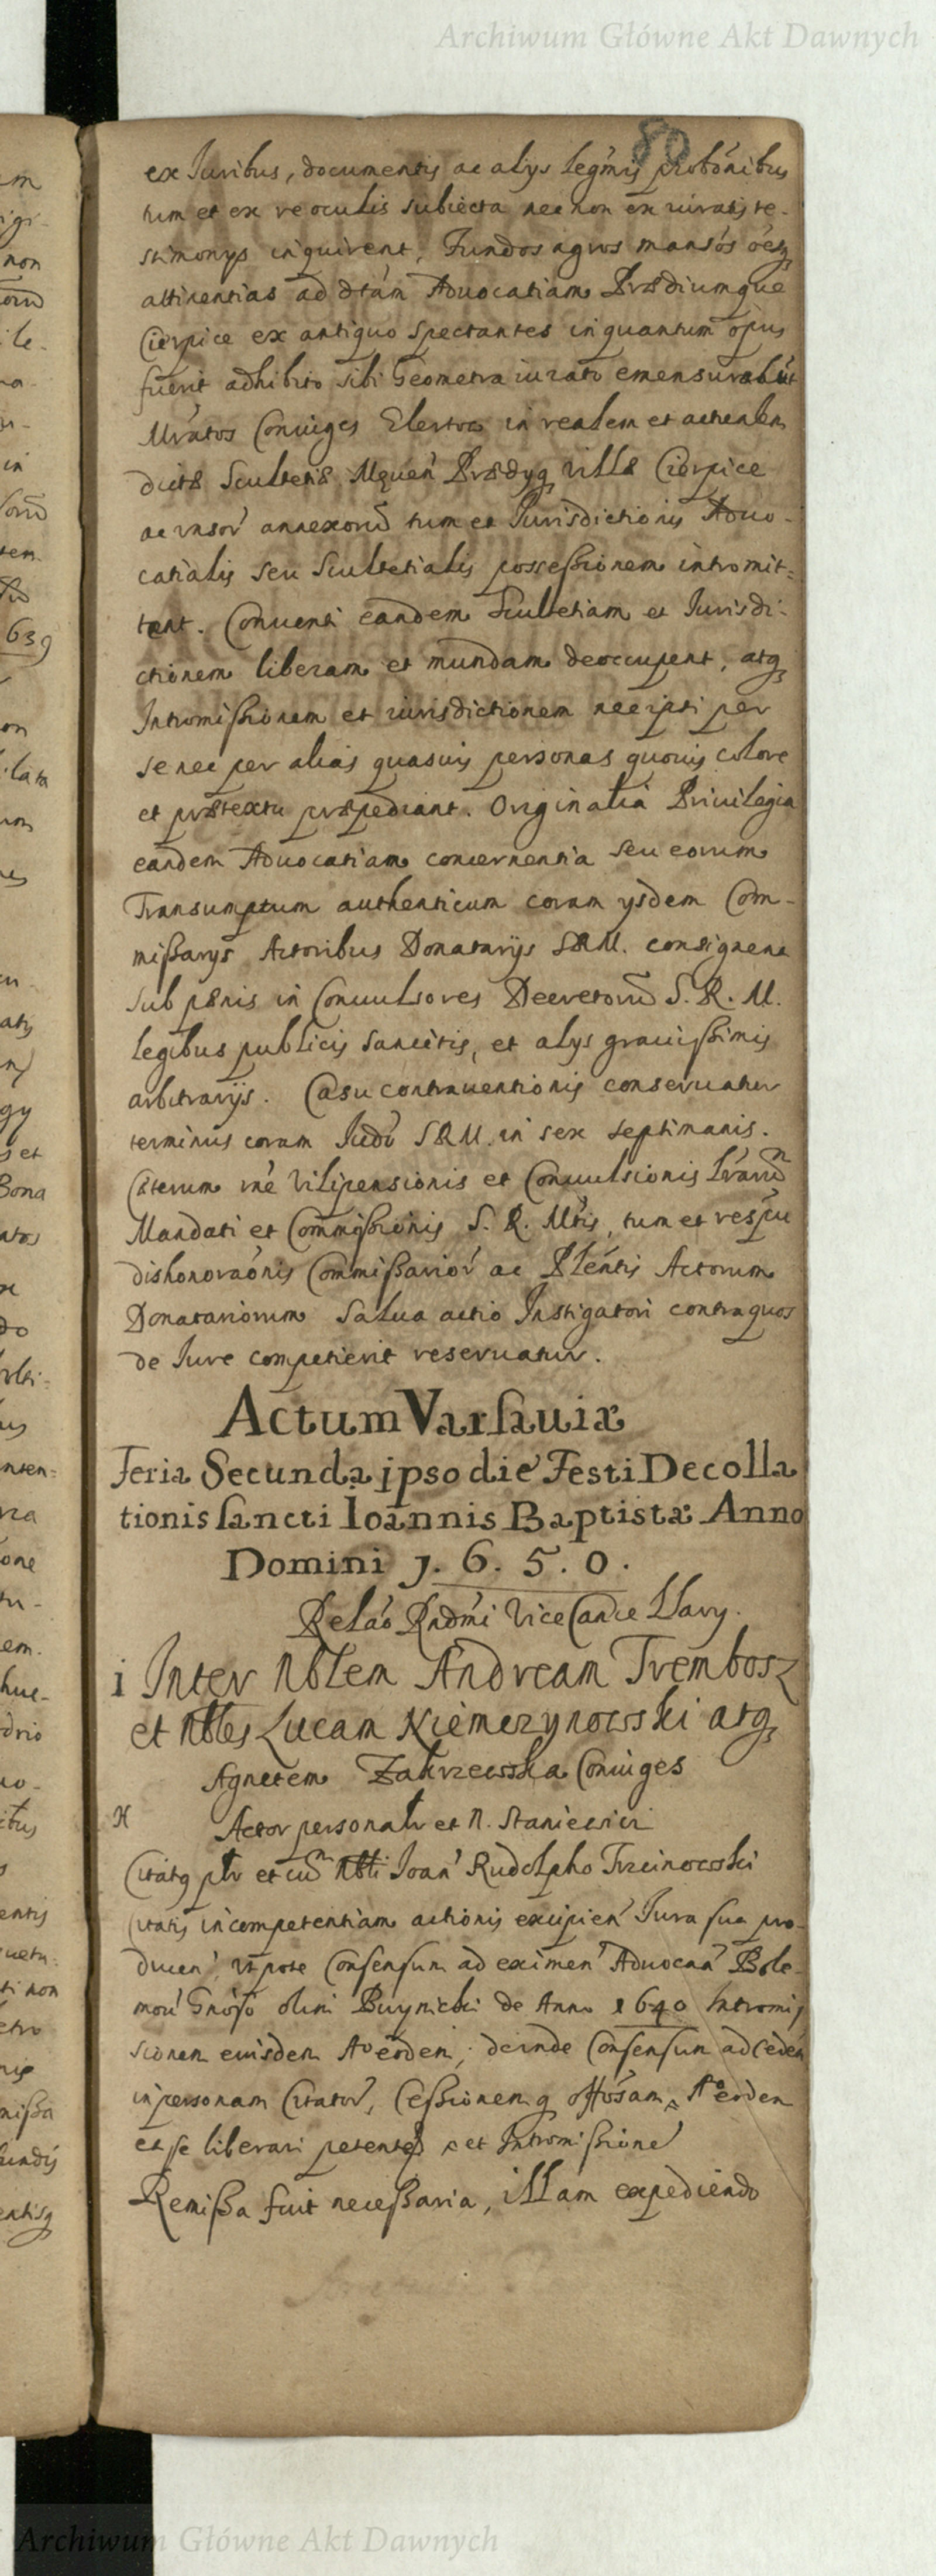 Archiwum Główne Akt Dawnych
80
ex Juribus, documentis ac alys legmis probonibus
tum et ex re oculis subiecta nec non ex iuratis te-
stimonys inquirent, Fundos agros mansos oesq
attinentias ad dtam Aduocatiam Prædiumque
Cierpice ex antiquo spectantes inquantum opus
fuerit adhibito sibi Geometra iurato emensurabut
Mratos Coniuges Electos in realem et actualem
dictæ Scultetiæ Prædyq villæ Cierpice
ac annexorum tum et Jurisdictionis Aduo-
catialis seu Scultetialis possessionem intromit=
tent. Conuenti eandem Scultetiam et Jurisdi-
ctionem liberam et mundam deoccupent, atq
Intromissionem et iurisdictionem nec ipsi per
se nec per alias quasuis personas quouis colore
et prætextu præpediant. Originalia Priuilegia
eandem Aduocatiam concernentia seu eorum
Transumptum authenticum coram ysdem Com-
missarys Actoribus Donatarijs SRM. consignent
sub pænis in Conuulsores Decretorum S. R. M.
legibus publicis sancitis, et alys grauissimis
arbitrarijs. Casu contrauentionis conseruatur
terminus coram Judo SRM. in sex septimanis.
Cæterum rne Vilipensionis et Conuulsionis Lrarum
Mandati et Commissionis S. R. Mtis, tum et respu
dishonoraonis Commissarior ac Plentis Actorum
Donatariorum salua actio Instigatori contra quos
de Jure competierit reseruatur.
Actum Varsauiæ
Feria Secunda ipso die Festi Decolla
tionis sancti Ioannis Baptistæ Anno
Domini J. 6. 5. 0.
Relao Rndmi Vice Cance Llary.
i Inter Nblem Andream Trembosz
et Nbles Lucam Niemczynowski atq
Agnetem Zakrzewska Coniuges
Actor personalr et N. Staniewicz
Citatq plr et cum Nbli Joan Rudolpho Trzcinowski
Citatis incompetentiam actionis excipien Jura sua pro-
ducen, utpote Consensum ad eximen Aduocan Bole-
mou Gnoso olim Buynicki de Anno 1640 Intromis
sionem eiusdem Aoerden; deinde Consensum ad Ceden
in personam Citator, Cessionemq offosam Aoerden
et se liberari petentes et Intromissione
Remissa fuit necessaria, illam expediendo
Archiwum Główne Akt Dawnych